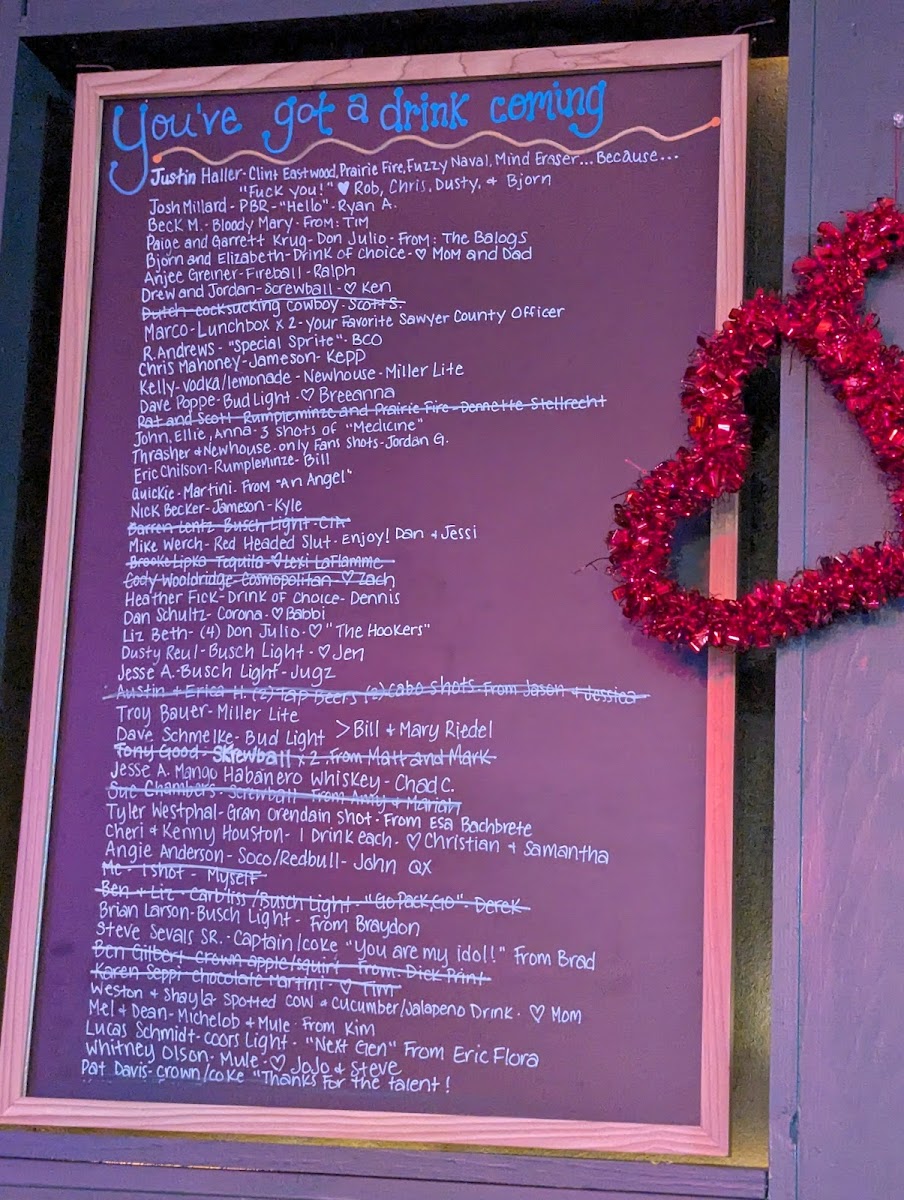 You've got a drink coming
Justin Haller-Clint Eastwood, Prairie Fire, Fuzzy Naval, Mind Eraser... Because...
"Fuck you!" ♥ Rob, Chris, Dusty, & Bjorn
Josh Millard - PBR - "Hello" - Ryan A.
Beck M. - Bloody Mary - From: Tim
Paige and Garrett Krug - Don Julio - From: The Balogs
Bjorn and Elizabeth - Drink of choice - ♡ Mom and Dad
Anjee Greiner - Fireball - Ralph
Drew and Jordan - Screwball - ♡ Ken
Dutch - cocksucking cowboy - Scott S.
Marco - Lunchbox x 2 - your Favorite Sawyer County Officer
R. Andrews - "Special Sprite" - BCO
Chris Mahoney - Jameson - Kepp
Kelly - vodka/lemonade - Newhouse - Miller Lite
Dave Poppe - Bud Light - ♡ Breeanna
Pat and Scott - Rumpleminze and Prairie Fire - Dennette Stellrecht
John, Ellie, Anna - 3 shots of "Medicine"
Thrasher & Newhouse - only Fans shots - Jordan G.
Eric Chilson - Rumpleminze - Bill
Quickie - Martini - From "An Angel"
Nick Becker - Jameson - Kyle
Darren Lentz - Busch Light -
Mike Werch - Red Headed Slut - Enjoy! Dan & Jessi
Brooke Lipka Tequila - ♡ Lexi LaFlamme
Cody Wooldridge - Cosmopolitan - ♡ Zach
Heather Fick - Drink of choice - Dennis
Dan Schultz - Corona - ♡ Babbi
Liz Beth - (4) Don Julio - ♡ "The Hookers"
Dusty Reul - Busch Light - ♡ Jen
Jesse A. - Busch Light - Jugz
Austin + Erica H. (2) Tap Beers (2) cabo shots - From Jason & Jessica
Troy Bauer - Miller Lite
Dave Schmelke - Bud Light > Bill & Mary Riedel
Tony Good - Skrewball x 2 - From Matt and Mark
Jesse A. Mango Habanero Whiskey - Chad C.
Sue Chambers - Screwball - From Amy & Mariah
Tyler Westphal - Gran orendain shot - From Esa Bachbrete
Cheri & Kenny Houston - 1 Drink each. ♡ Christian & Samantha
Angie Anderson - Soco/Redbull - John QX
Me - 1 shot - Myself
Ben & Liz - Carbliss/Busch Light - "Go Pack, Go" - Derek
Brian Larson - Busch Light - From Braydon
Steve Sevals SR. - Captain/coke "You are my idol!" From Brad
Ben Gilbert Crown apple/squirt - From: Dick Print
Karen Seppi Chocolate Martini - ♡ Tim
Weston & Shayla Spotted Cow & Cucumber/Jalapeno Drink - ♡ Mom
Mel & Dean - Michelob & Mule - From Kim
Lucas Schmidt - coors Light - "Next Gen" From Eric Flora
Whitney Olson - Mule - ♡ JoJo & Steve
Pat Davis - crown/coke "Thanks For the talent!